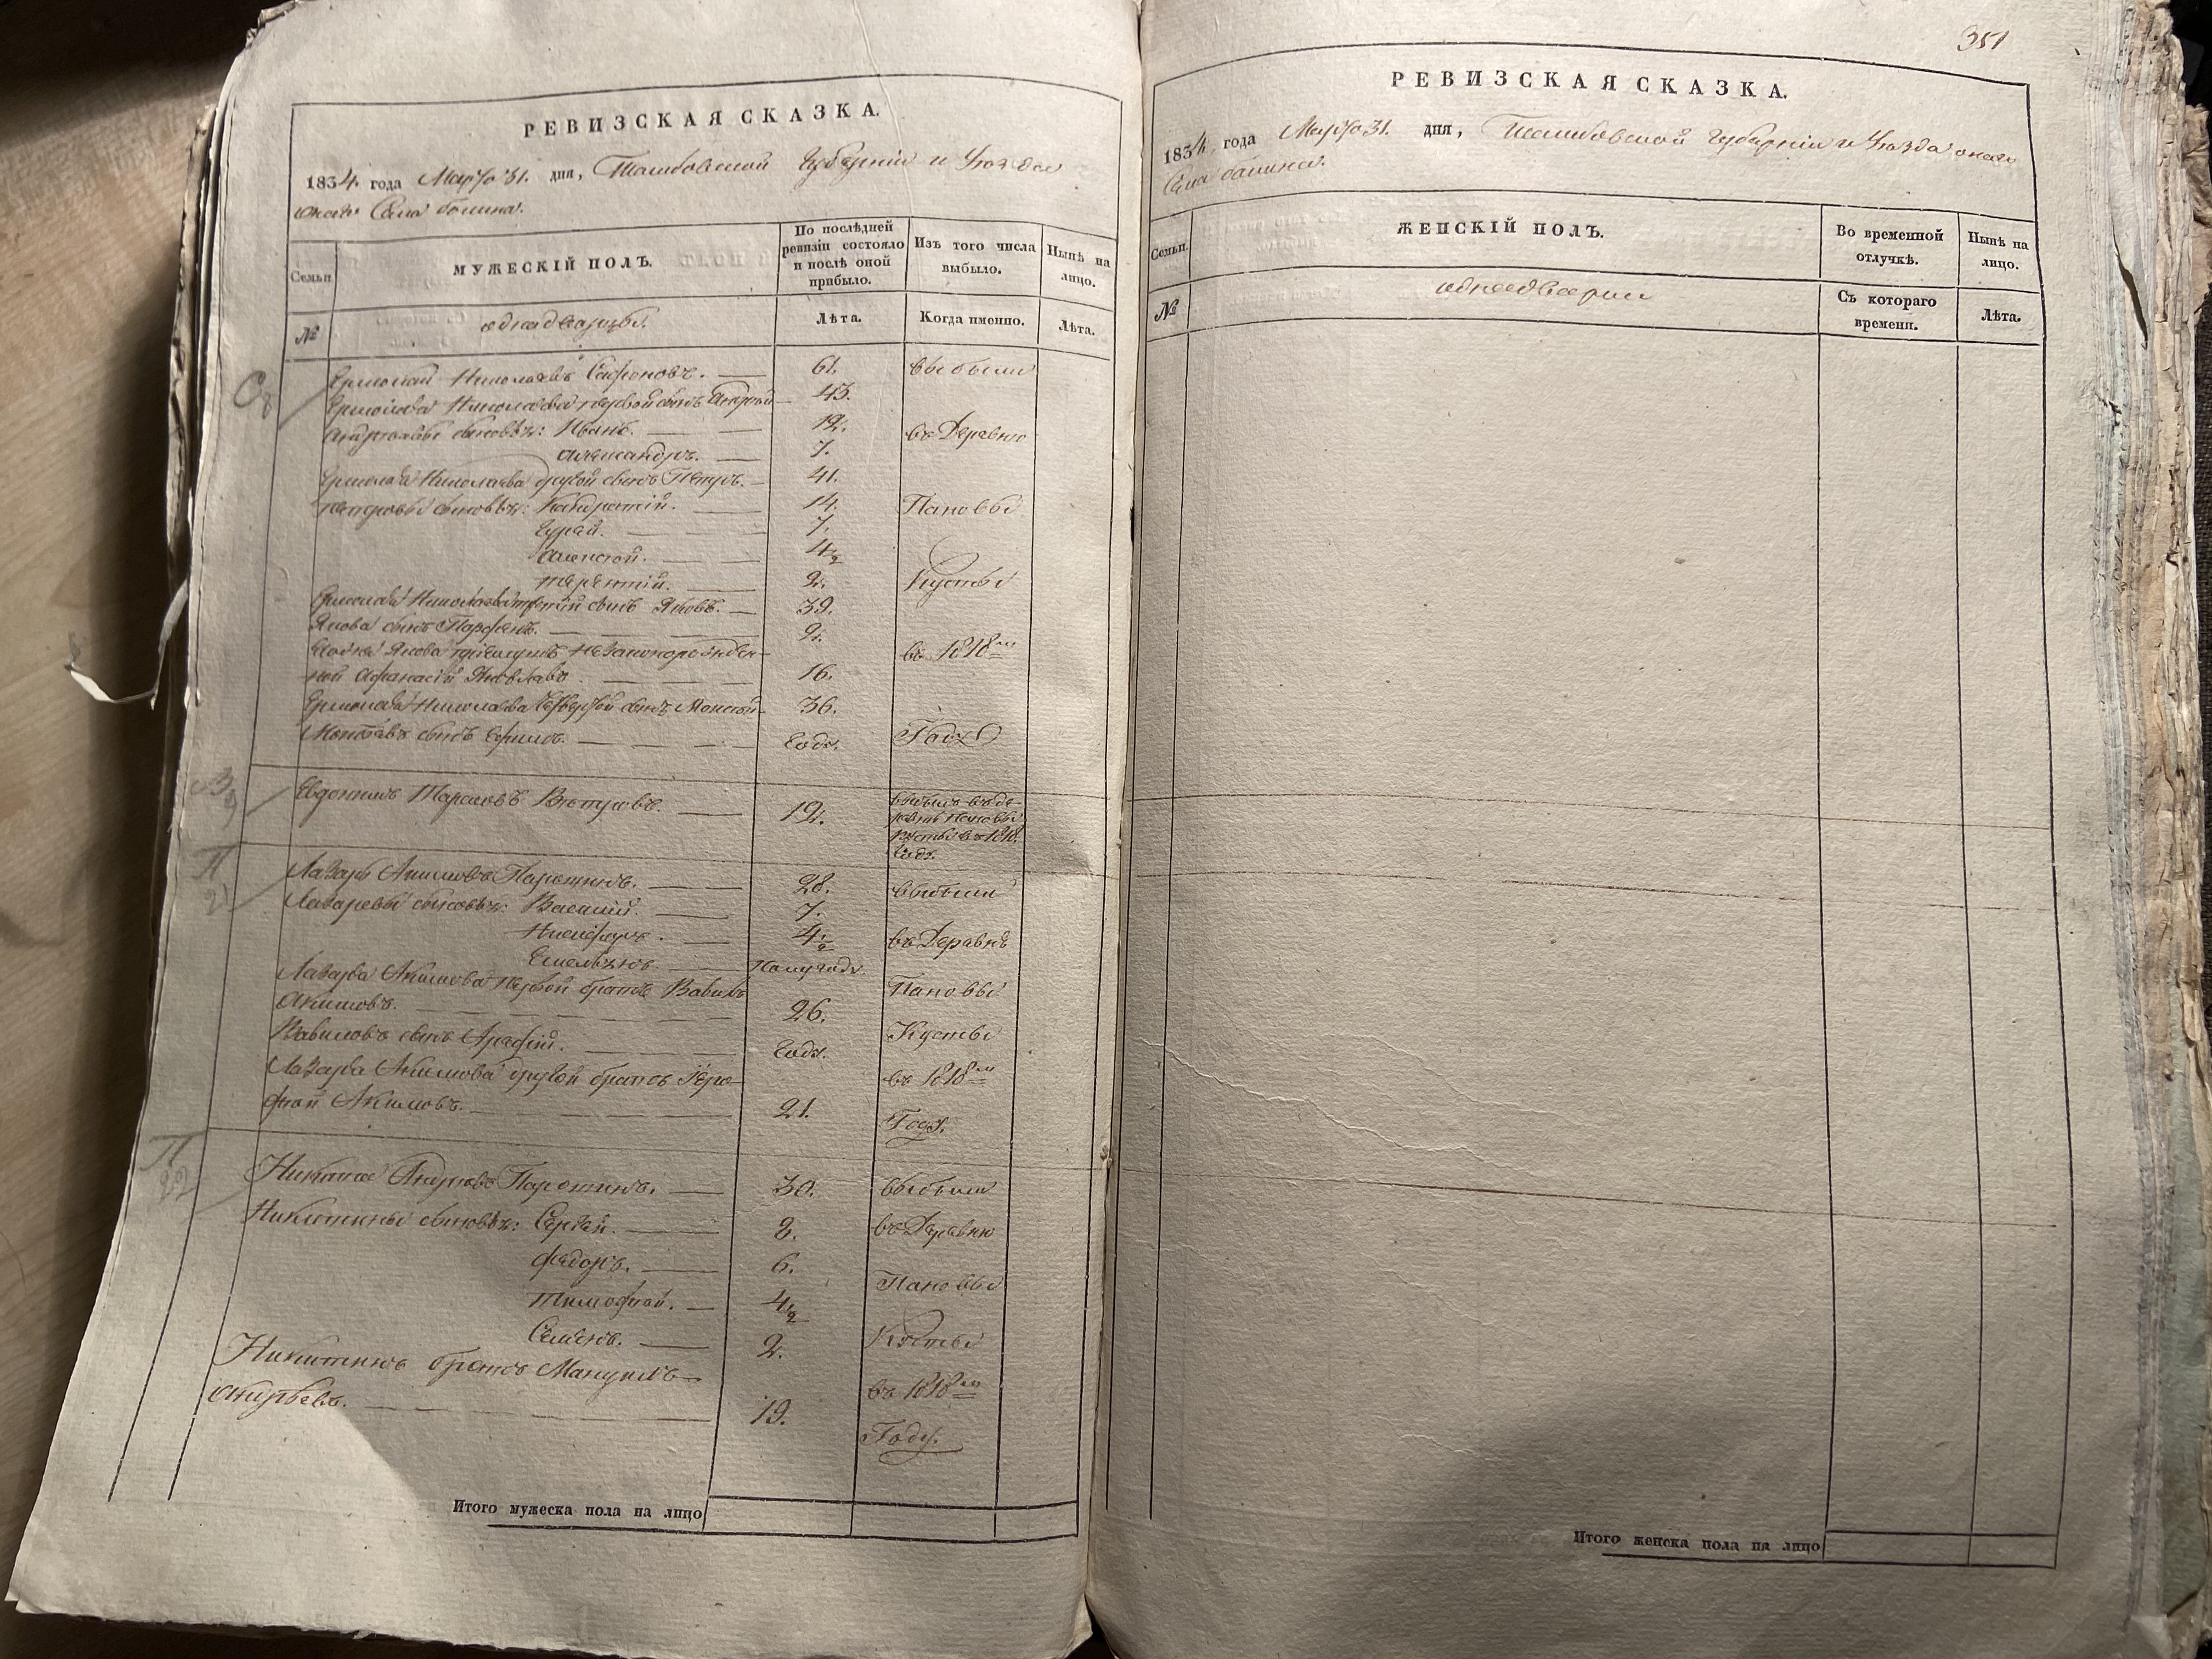 РЕВИЗСКАЯ СКАЗКА.
1834. года Марта 31. дня, Тамбовской Губернии и Уезда
онаго Села
Семьи
МУЖЕСКІЙ ПОЛЪ.
По послѣдней ревизіи состояло и послѣ оной прибыло.
Изъ того числа выбыло.
Нынѣ на лицо.
№
однадворцы.
Лѣта.
Когда именно.
Лѣта.
Ермолай Николаевъ Сафоновъ. 61. выбыли
Ермолая Николаева первой сынъ Андрей 43.
Андреевы сыновья: Иванъ. 12. въ Деревню
Александръ. 7.
Ермолая Николаева другой сынъ Петръ. 41.
Петровы сыновья: Кандратій. 14. Пановы
Гурей. 7.
Алексей. 4½
Терентій. 2. Кусты
Ермолая Николаева третій сынъ Яковъ. 39.
Якова сынъ Парфенъ. 9.
Якова незаконорожден- въ 1818м
ной Афанасій 16.
Ермолая Николаева четвертой сынъ Моисей 36.
Моисеевъ сынъ Ефимъ. Годъ. Году
Евдокимъ Тарасовъ 12. выбылъ въ де-
ревню Пановы
Кусты въ 1818.
Годъ.
Лазарь Акимовъ Паротикъ. 28. выбыли
Лазаревы сыновья: Василий. 7.
Никифоръ. 4½ въ Деревнѣ
Емельянъ. Полугоду.
Лазаря Акимова первой братъ Вавилъ Пановы
Акимовъ. 26.
Вавиловъ сынъ Арефий. Годъ. Кусты
Лазаря Акимова другой братъ Ерο- въ 1818м
фей Акимовъ. 21. Году.
Никита Андреевъ 30. выбыли
Никитины сыновья: Сергей. 8. въ Деревню
Федоръ. 6.
Тимофей. 4½ Пановы
Семенъ. 2. Кусты
Никитинъ братъ въ 1818м
Андреевъ. 19. Году.
Итого мужеска пола на лицо
351
РЕВИЗСКАЯ СКАЗКА.
1834. года Марта 31. дня, Тамбовской Губерніи и Уезда онаго
Села
Семьи
ЖЕНСКІЙ ПОЛЪ.
Во временной отлучкѣ.
Нынѣ на лицо.
№
Съ котораго времени.
Лѣта.
Итого женска пола на лицо